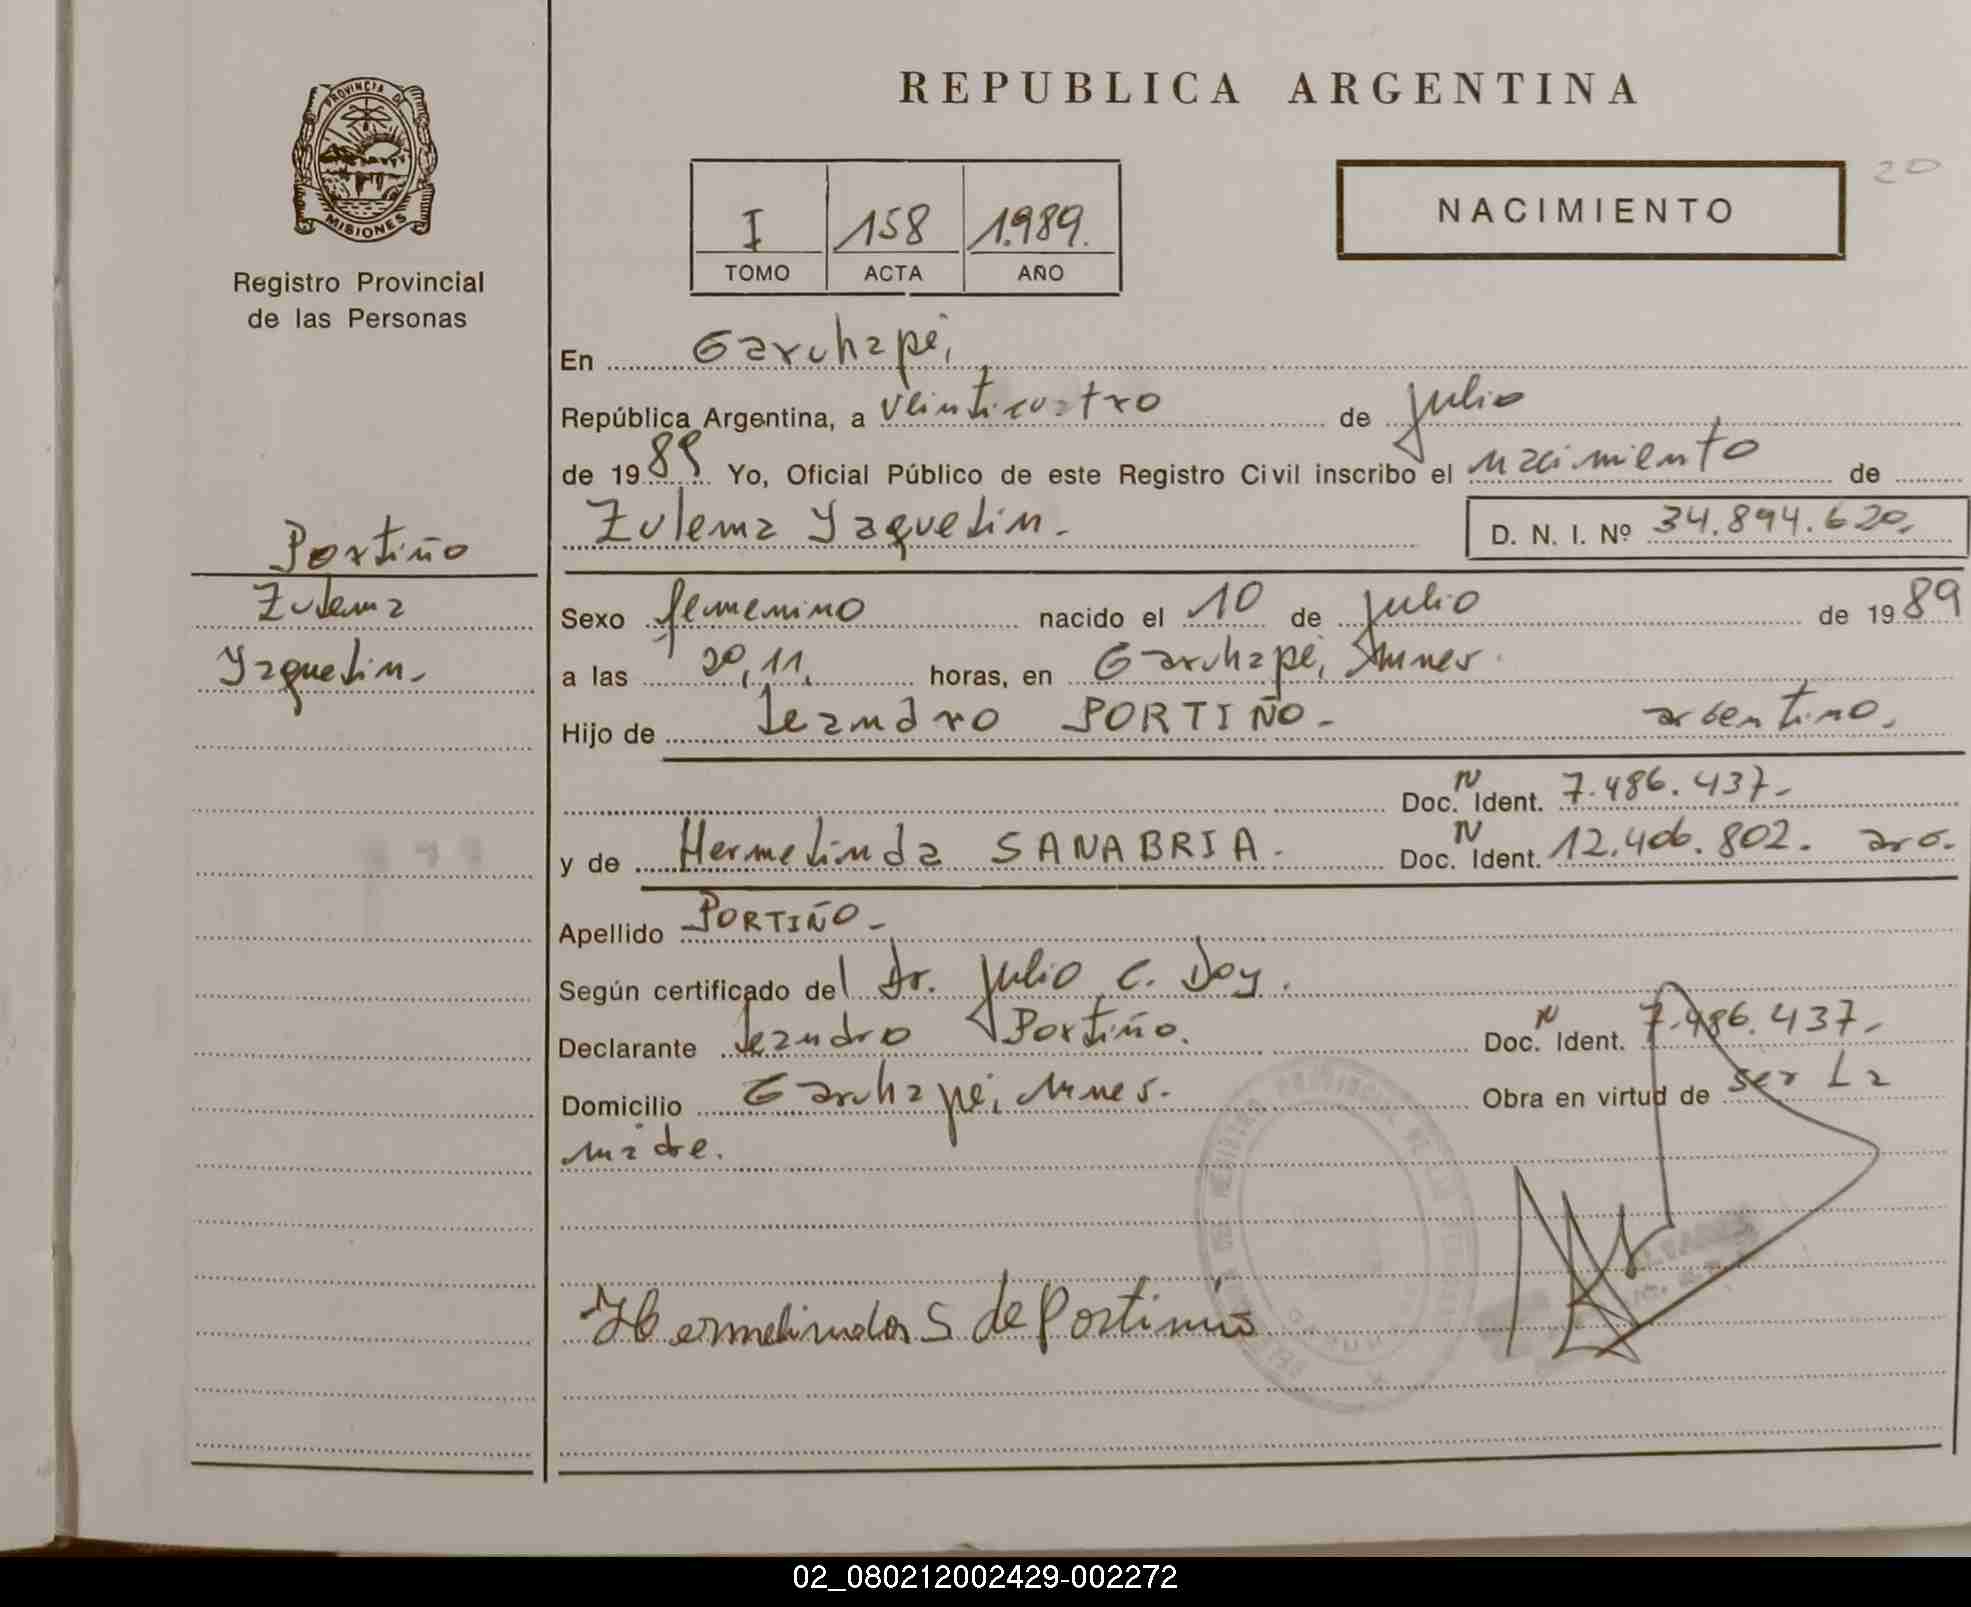 PROVINCIA DE
MISIONES
Registro Provincial
de las Personas
Portiño
Zulema
Yaquelin.
REPUBLICA ARGENTINA
20
I 158 1.989.
TOMO ACTA AÑO
NACIMIENTO
En Garuhapé,
República Argentina, a veinticuatro de julio
de 1989 Yo, Oficial Público de este Registro Civil inscribo el nacimiento de
Zulema Yaquelin. D. N. I. Nº 34.894.620.
Sexo femenino nacido el 10 de julio de 1989
a las 20,11, horas, en Garuhapé, Mnes.
Hijo de Leandro PORTIÑO - argentino.
Doc. N Ident. 7.486.437-
y de Hermelinda SANABRIA. Doc. N Ident. 12.406.802. arg.
Apellido PORTIÑO -
Según certificado del Dr. Julio C. Doy.
Declarante Leandro Portiño. Doc. N Ident. 7.486.437-
Domicilio Garuhapé, Mnes. Obra en virtud de ser La
madre.
Hermelinda S de Portiño
02_080212002429-002272